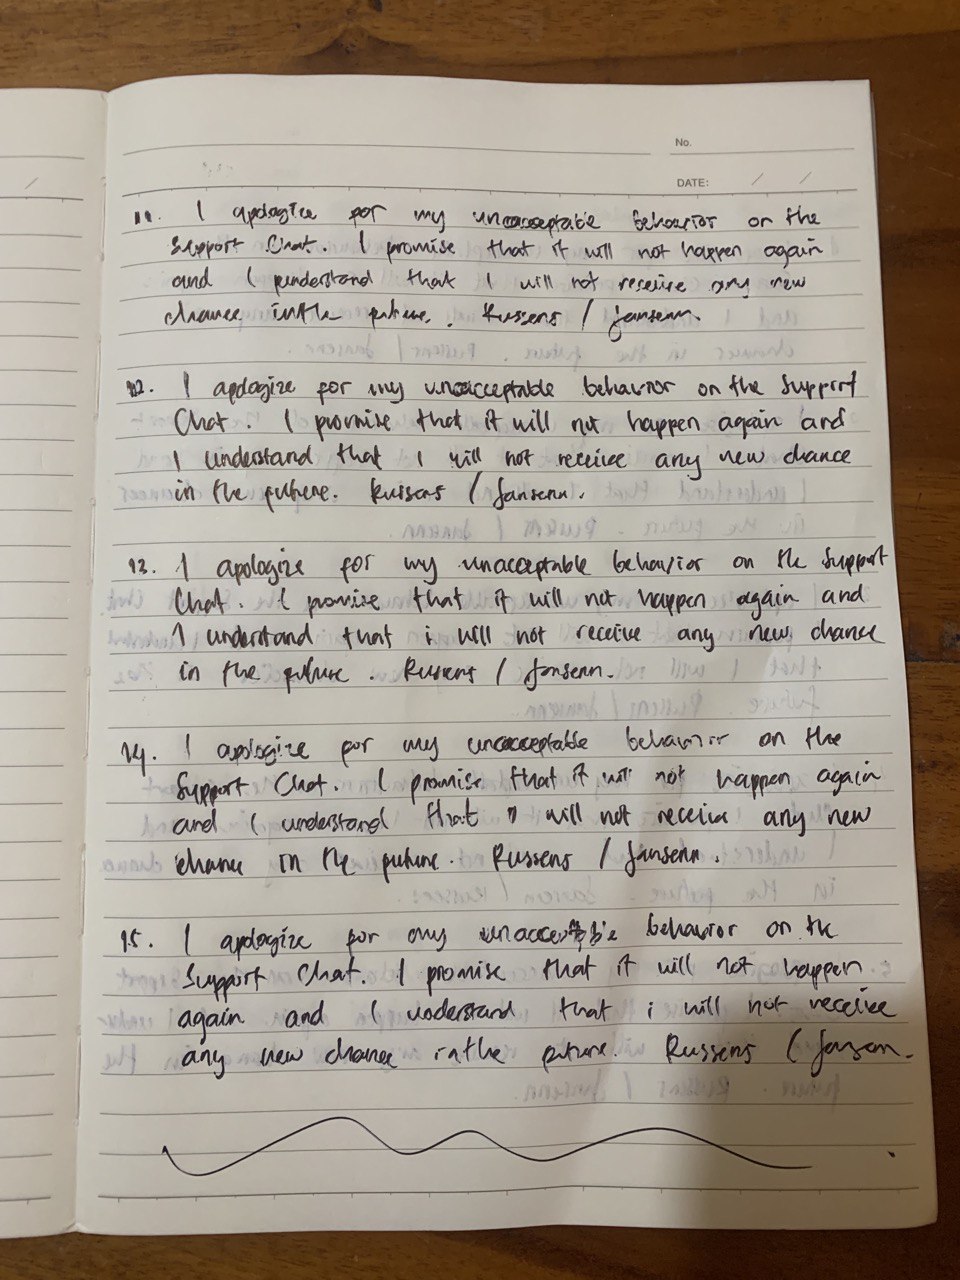 No.
DATE: / /
11. I apologize for my unacceptable behavior on the
Support Chat. I promise that it will not happen again
and I understand that I will not receive any new
chance in the future. Russens / Jansenn.
12. I apologize for my unacceptable behavior on the Support
Chat. I promise that it will not happen again and
I understand that I will not receive any new chance
in the future. Russens / Jansenn.
13. I apologize for my unacceptable behavior on the Support
Chat. I promise that it will not happen again and
I understand that i will not receive any new chance
in the future. Russens / Jansenn.
14. I apologize for my unacceptable behavior on the
Support Chat. I promise that it will not happen again
and I understand that I will not receive any new
chance in the future. Russens / Jansenn.
15. I apologize for my unacceptable behavior on the
Support Chat. I promise that it will not happen
again and I understand that i will not receive
any new chance in the future. Russens / Jansenn.